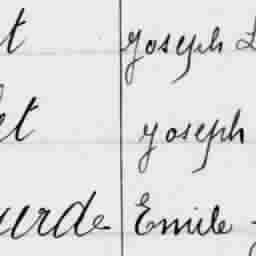 t Joseph L
et Joseph
urde Emile